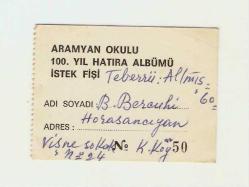 ARAMYAN OKULU
100. YIL HATIRA ALBÜMÜ
İSTEK FİŞİ Teberrü: Altmış
"60"
ADI SOYADI : B. Bercuhi
Horasancıyan
ADRES :
Vişne sokak № K. Köy 50
№ 24